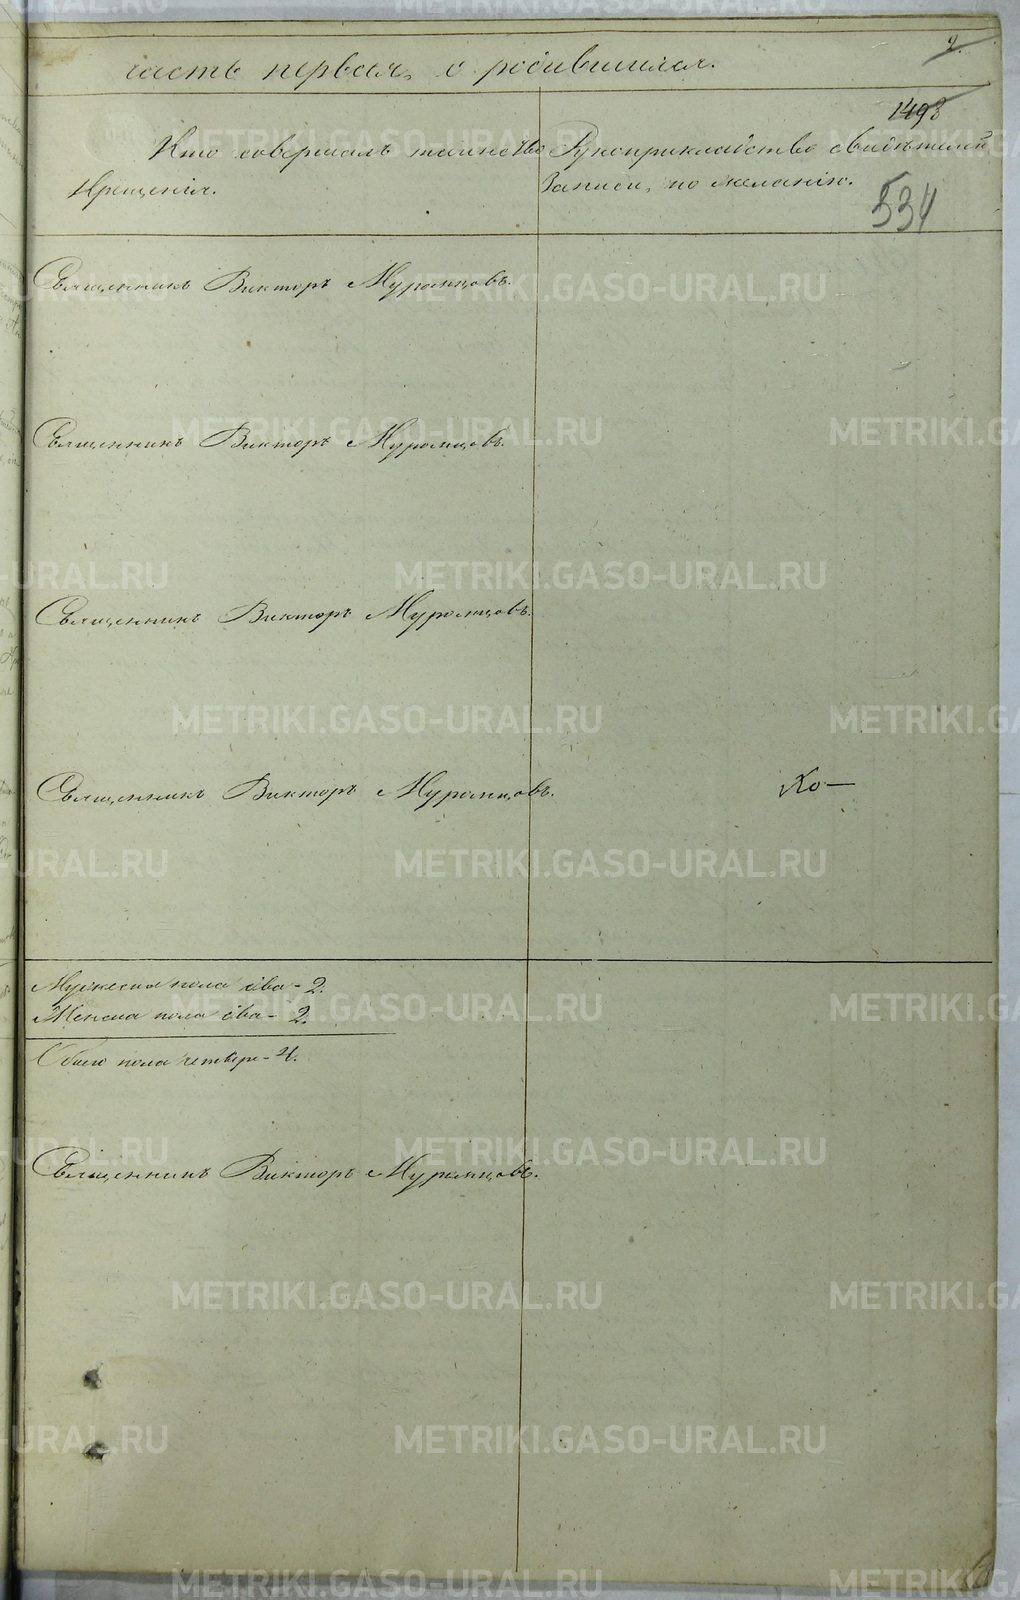 2.
часть первая, о родившихся.
1493
Кто совершалъ таинство
Крещенія.
Рукоприкладство свидѣтелей
записи, по желанію.
534
Священникъ Викторъ Муромцовъ.
Священникъ Викторъ Муромцовъ.
Священникъ Викторъ Муромцовъ.
Священникъ Викторъ Муромцовъ.
Мужеска пола два - 2.
Женска пола два - 2.
Обоего пола четверо - 4.
Священникъ Викторъ Муромцовъ.
METRIKI.GASO-URAL.RU